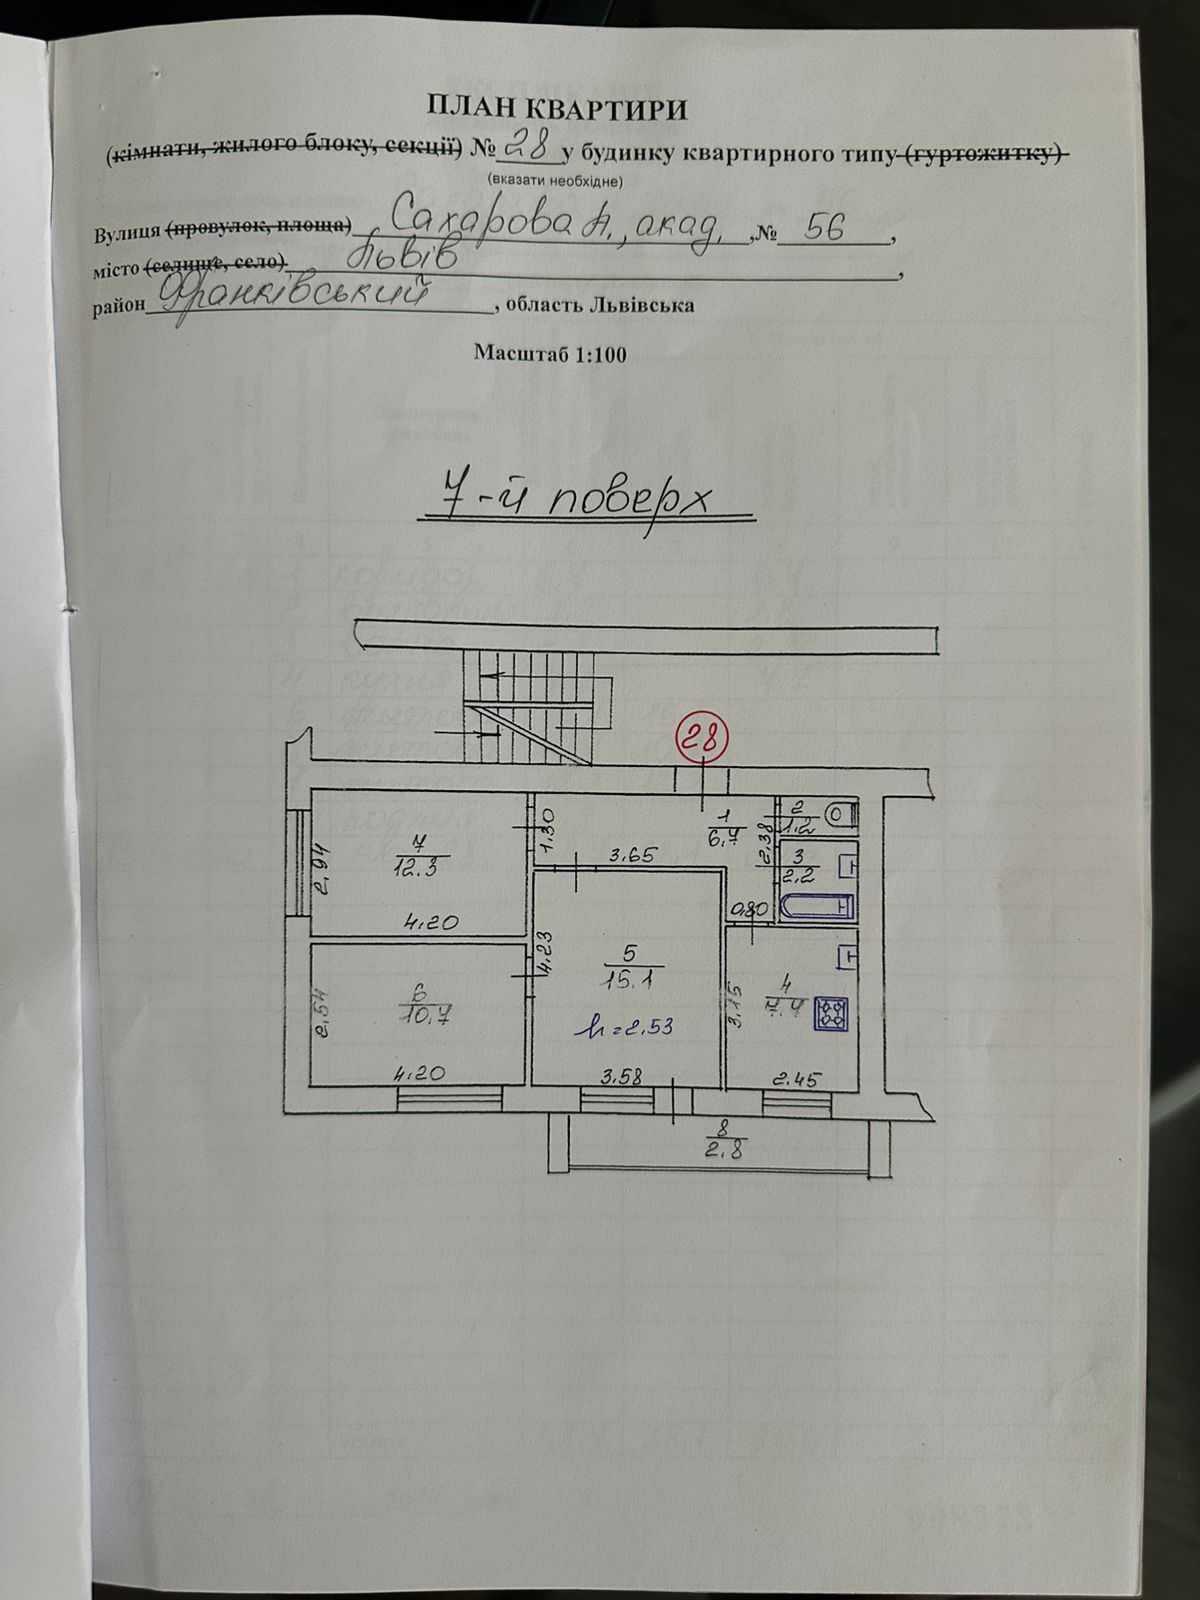 ПЛАН КВАРТИРИ
(кімнати, жилого блоку, секції) № 28 у будинку квартирного типу (гуртожитку)
(вказати необхідне)
Вулиця (провулок, площа) Сахарова А., акад. ,№ 56 ,
місто (селище, село) Львів ,
район Франківський , область Львівська
Масштаб 1:100
7-й поверх
28
7
12.3
2.94
4.20
1.30
3.65
1
6.7
2.38
2
1.2
3
2.2
0.80
6
10.7
2.54
4.20
4.23
5
15.1
h=2.53
3.58
3.15
4
7.4
2.45
8
2.8